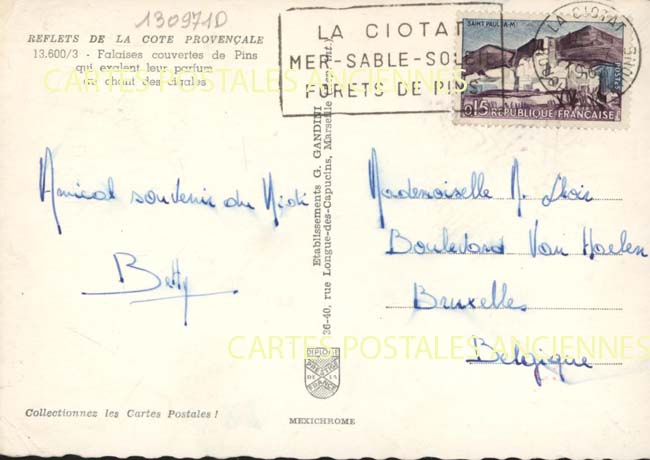 130971D
REFLETS DE LA COTE PROVENÇALE
13.600/3 - Falaises couvertes de Pins
qui exalent leur parfum
au chant des cigales
LA CIOTAT
MER-SABLE-SOLEIL
FORETS DE PINS
SAINT PAUL (A-M)
LA CIOTAT
POSTES
0,15 RÉPUBLIQUE FRANÇAISE
Amical souvenir du Midi
Betty
Etablissements G. GANDINI
36-40, rue Longue-des-Capucins, Marseille
Mademoiselle M.
Boulevard Van Haelen
Bruxelles
Belgique
CARTES POSTALES ANCIENNES
CARTES POSTALES ANCIENNES
DIPLOME
PRESTIGE
DE LA
FRANCE
Collectionnez les Cartes Postales !
MEXICHROME